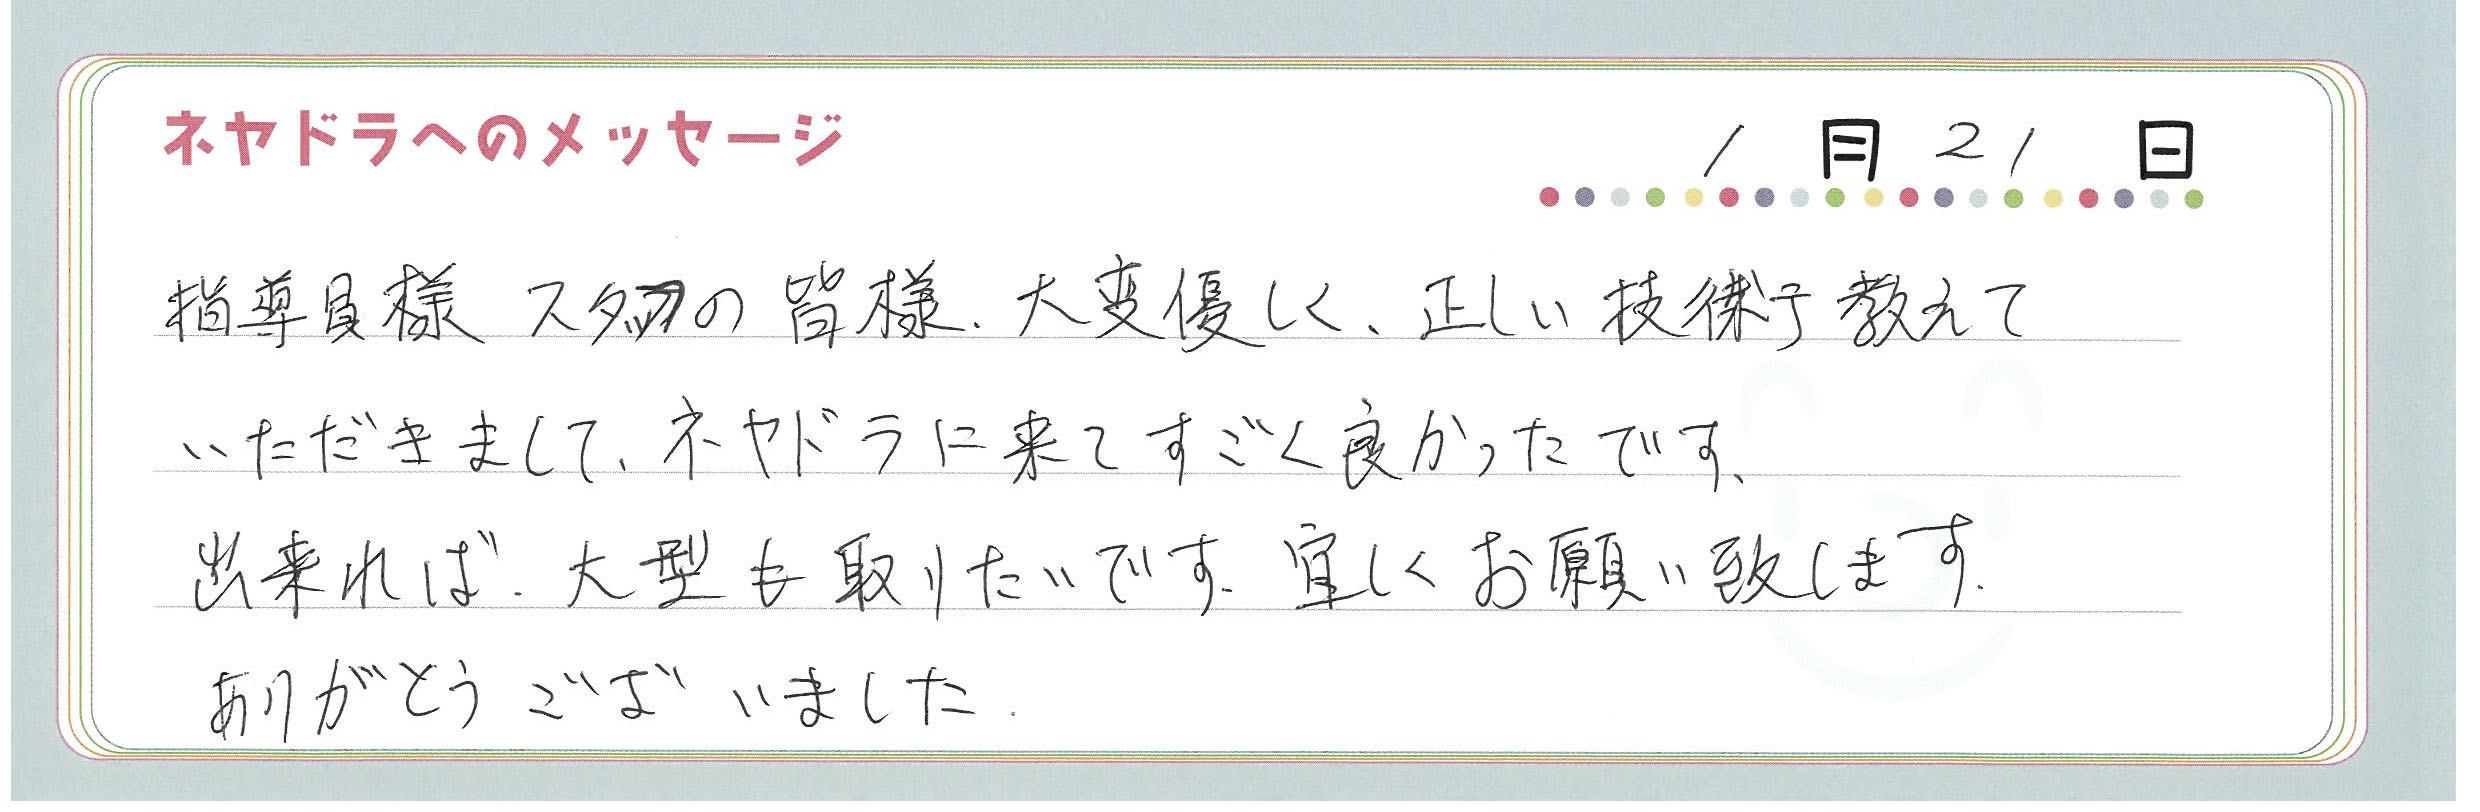 ネヤドラへのメッセージ
1月21日
指導員様 スタッフの皆様、大変優しく、正しい技術を教えて
いただきまして、ネヤドラに来てすごく良かったです、
出来れば、大型も取りたいです、宜しくお願い致します。
ありがとうございました。